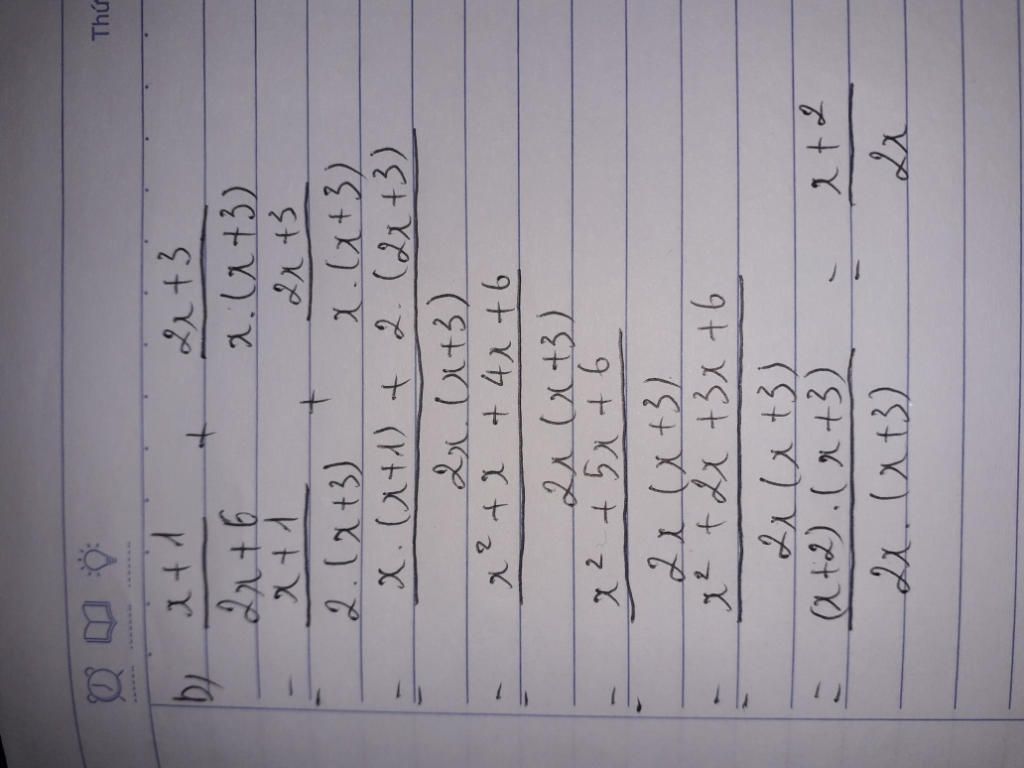 Thứ
b) (x+1)/(2x+6) + (2x+3)/(x.(x+3))
= (x+1)/(2.(x+3)) + (2x+3)/(x.(x+3))
= (x.(x+1) + 2.(2x+3))/(2x.(x+3))
= (x² + x + 4x + 6)/(2x(x+3))
= (x² + 5x + 6)/(2x(x+3))
= (x² + 2x + 3x + 6)/(2x(x+3))
= ((x+2).(x+3))/(2x.(x+3)) = (x+2)/(2x)